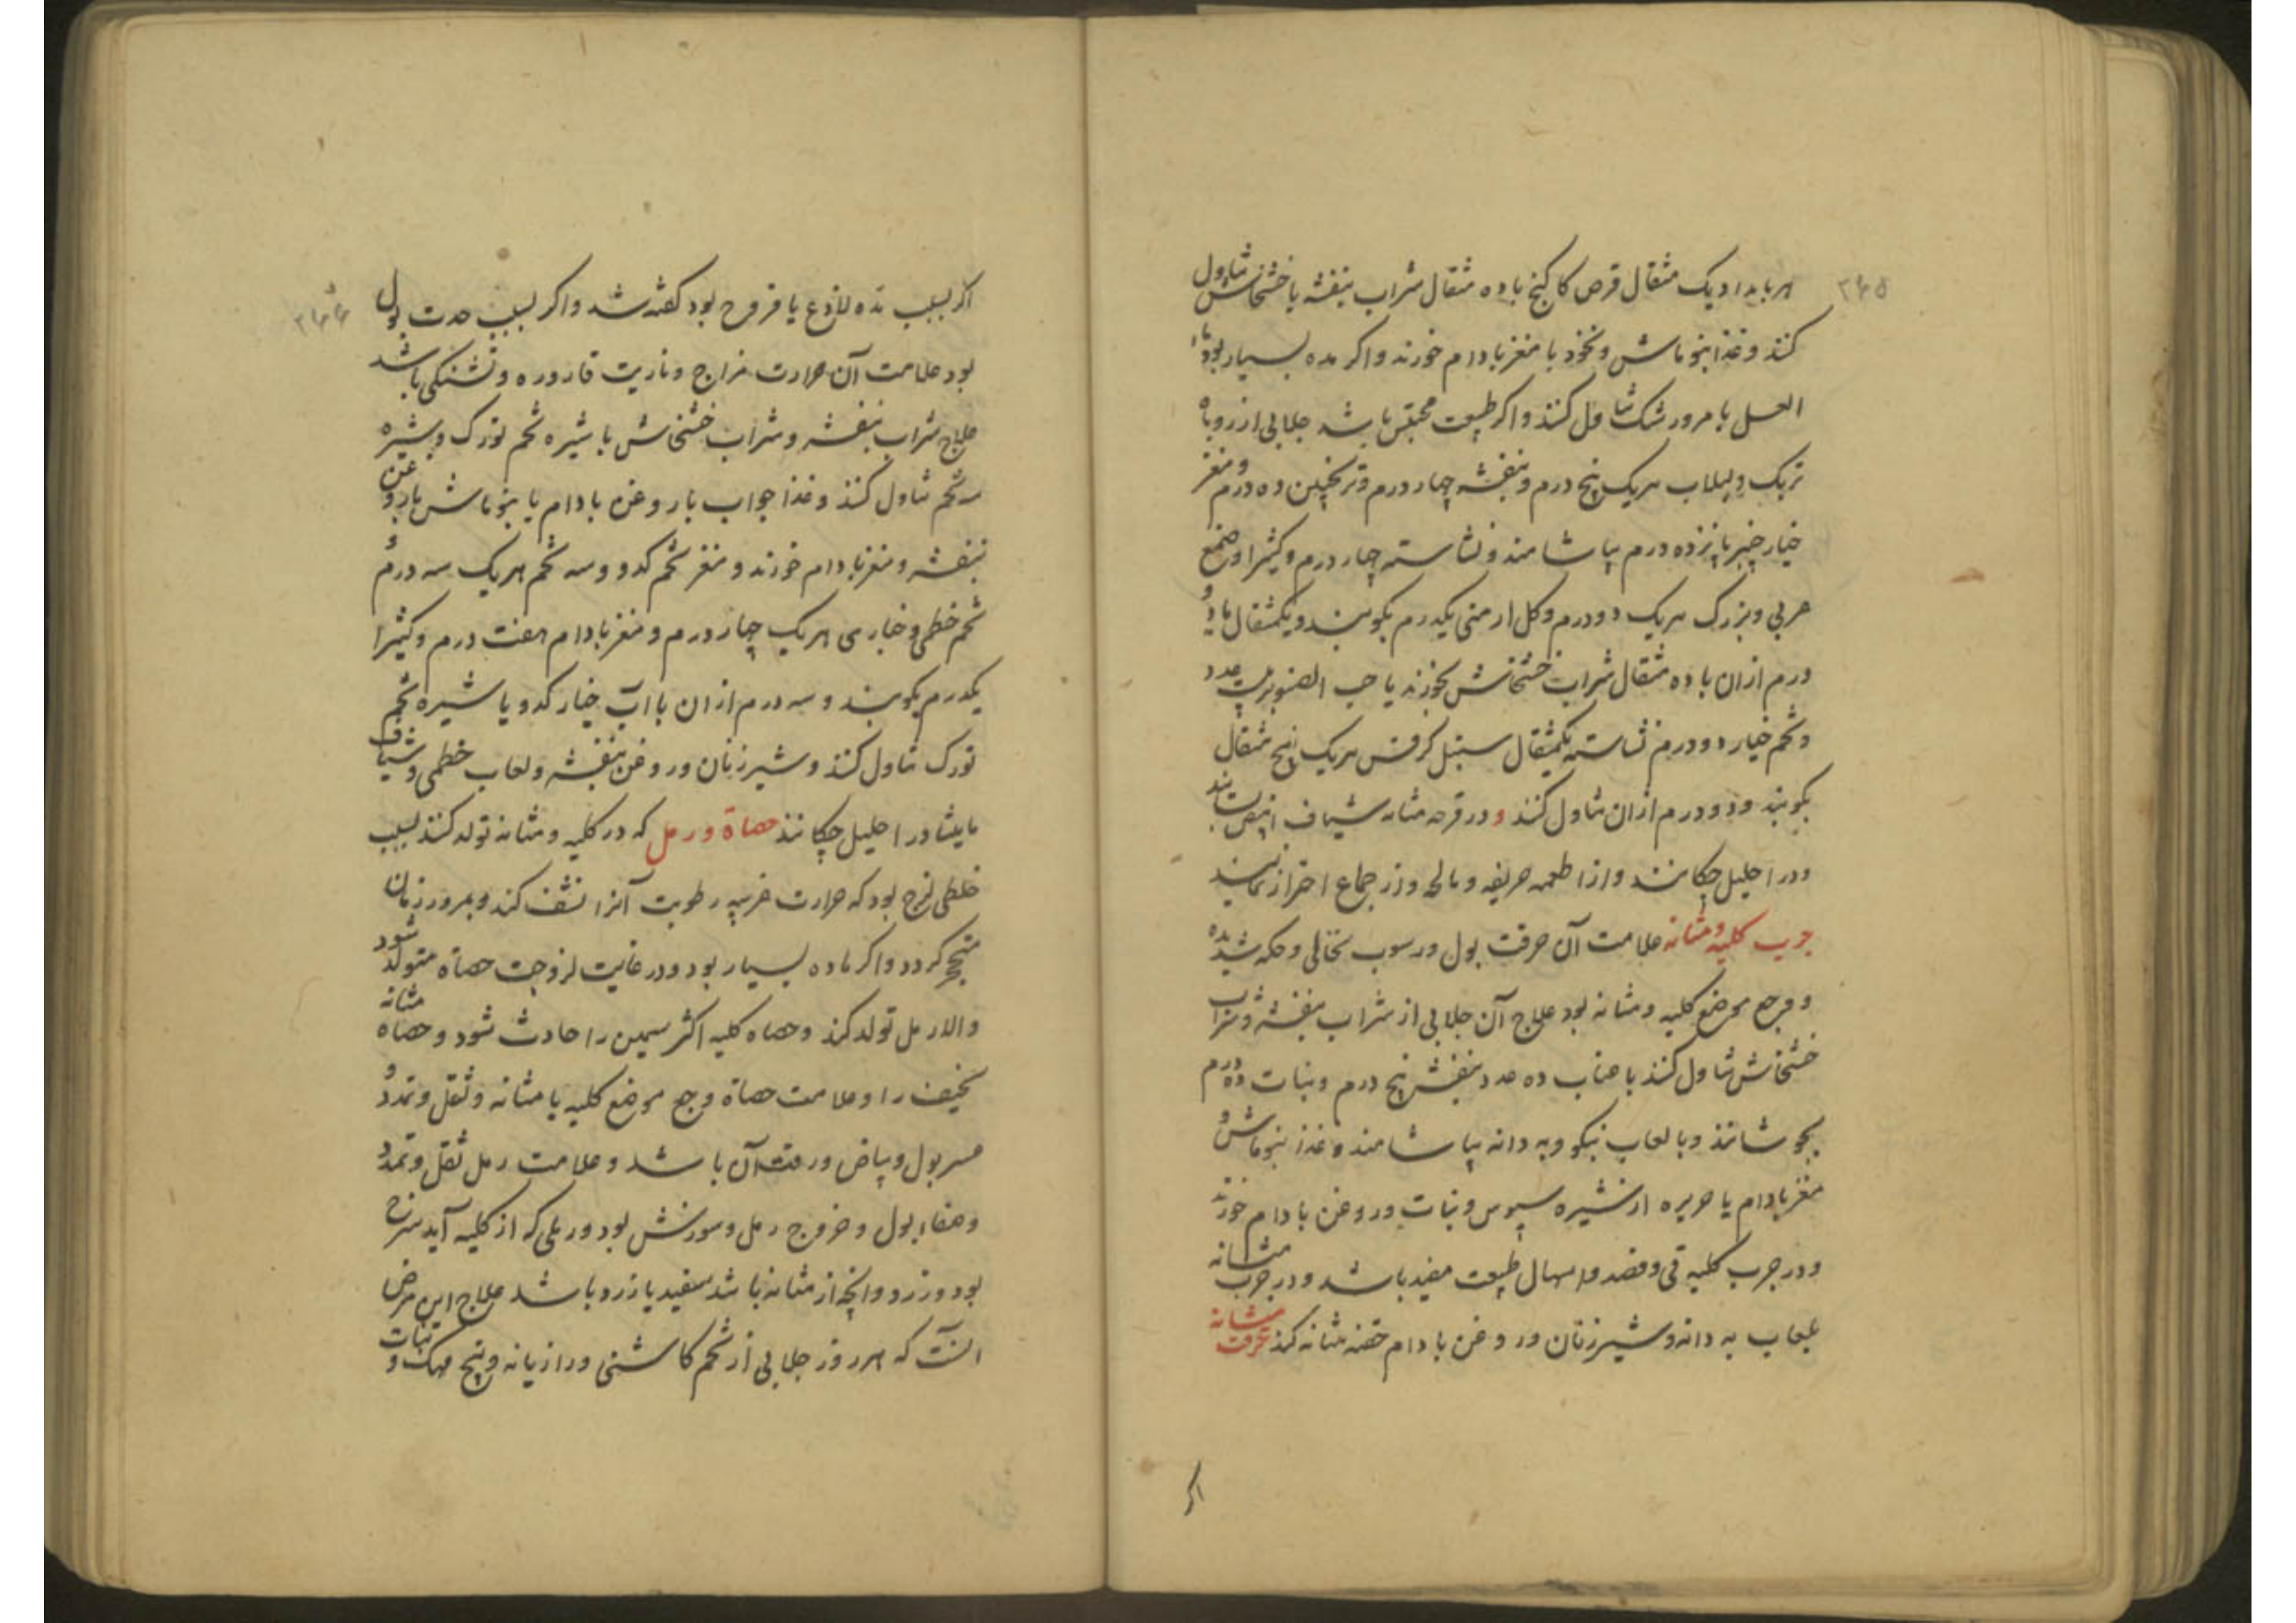 ۲۶۵
هر بامداد یک مثقال قرص کاکنج با ده مثقال شراب بنفشه یا خشخاش تناول
کنند و غذا بنوماش و نخود با مغز بادام خورند و اگر مده بسیار بود ماء
العسل یا مرور شک تناول کنند و اگر طبیعت محتبس باشد جلابی از زوباه
تربک و لبلاب هریک پنج درم و بنفشه چهار درم و ترنجبین ده درم و مغز
خیار چنبر پانزده درم بیاشامند و نشاسته چهار درم و کثیرا و صمغ
عربی و بزرک هریک دو درم و کل ارمنی یکدرم بکوبند و یکمثقال تا دو
درم از ان با ده مثقال شراب خشخاش بخورند یا حب الصنوبر بیست عدد
و تخم خیار دو درم نشاسته یکمثقال سنبل کرفس هریک پنج مثقال
بکوبند و دو درم از ان تناول کنند و در قرحه مثانه شیاف ابیض بسایند
و در احلیل چکانند و از اطعمه حریفه و مالحه و از جماع احتراز نمایند
جرب کلیه و مثانه علامت آن حرقت بول و رسوب نخالی و حکه شدیده
و وجع موضع کلیه و مثانه بود علاج آن جلابی از شراب بنفشه و شراب
خشخاش تناول کنند یا عناب ده عدد بنفشه پنج درم و نبات ده درم
بجوشانند و با لعاب نیکو و به دانه بیاشامند و غذا بنوماش و
مغز بادام یا حریره از شیره سپوس و نبات و روغن بادام خورند
و در جرب کلیه قی و فصد و اسهال طبیعت مفید باشد و در جرب مثانه
بلعاب به دانه و شیر زنان و روغن بادام حقنه مثانه کنند حرقت مثانه
اگر
۲۶۶
اگر بسبب مده لاذع یا قروح بود گفته شد و اگر بسبب حدت بول
بود علامت آن حرارت مزاج و ناریت قاروره و تشنکی باشد
علاج شراب بنفشه و شراب خشخاش با شیره تخم تورک و بشیره
سه تخم تناول کنند و غذا جواب با روغن بادام یا بنوماش با روغن
بنفشه و مغز بادام خورند و مغز تخم کدو و سه تخم هریک سه درم و
تخم خطمی و خبازی هریک چهار درم و مغز بادام هفت درم و کثیرا
یکدرم بکوبند و سه درم از ان با آب خیار کدو یا شیره تخم
تورک تناول کنند و شیر زنان و روغن بنفشه و لعاب خطمی و شیاف
مامیثا در احلیل چکانند حصاة و رمل که در کلیه و مثانه تولد کنند بسبب
خلطی لزج بود که حرارت غریبه رطوبت آنرا نشف کند و بمرور زمان
متحجر کردد و اگر ماده بسیار بود و در غایت لزوجت حصاة متولد شود
و الا رمل تولد کند و حصاه کلیه اکثر سمین را حادث شود و حصاه مثانه
نحیف را و علامت حصاة وجع موضع کلیه یا مثانه و ثقل و تمدد و
عسر بول و بیاض و رقت آن باشد و علامت رمل ثقل و تمدد
و صفاء بول و خروج رمل و سوزنش بود و رملی که از کلیه آید سرخ
بود و زرد و آنچه از مثانه باشد سفید یا زرد باشد علاج این مرض
انست که هر روز جلابی از تخم کاسنی و رازیانه و پنج مهک و نبات